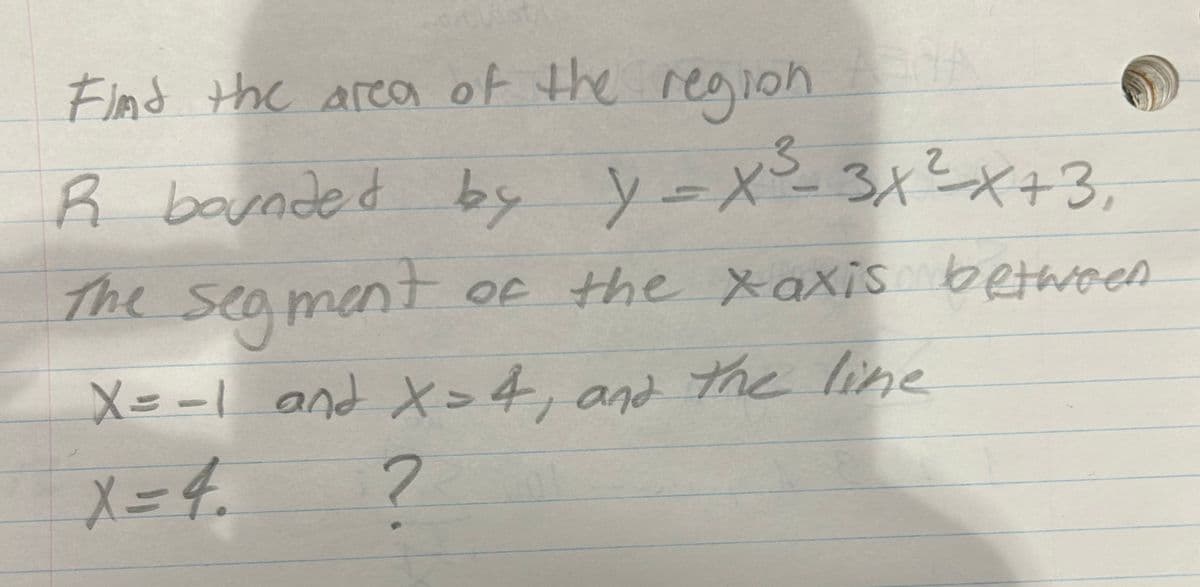 Find the area of the region
R bounded by y = x³- 3x²-x+3,
The segment of the x axis between
X= -1 and x=4, and the line
X=4. ?